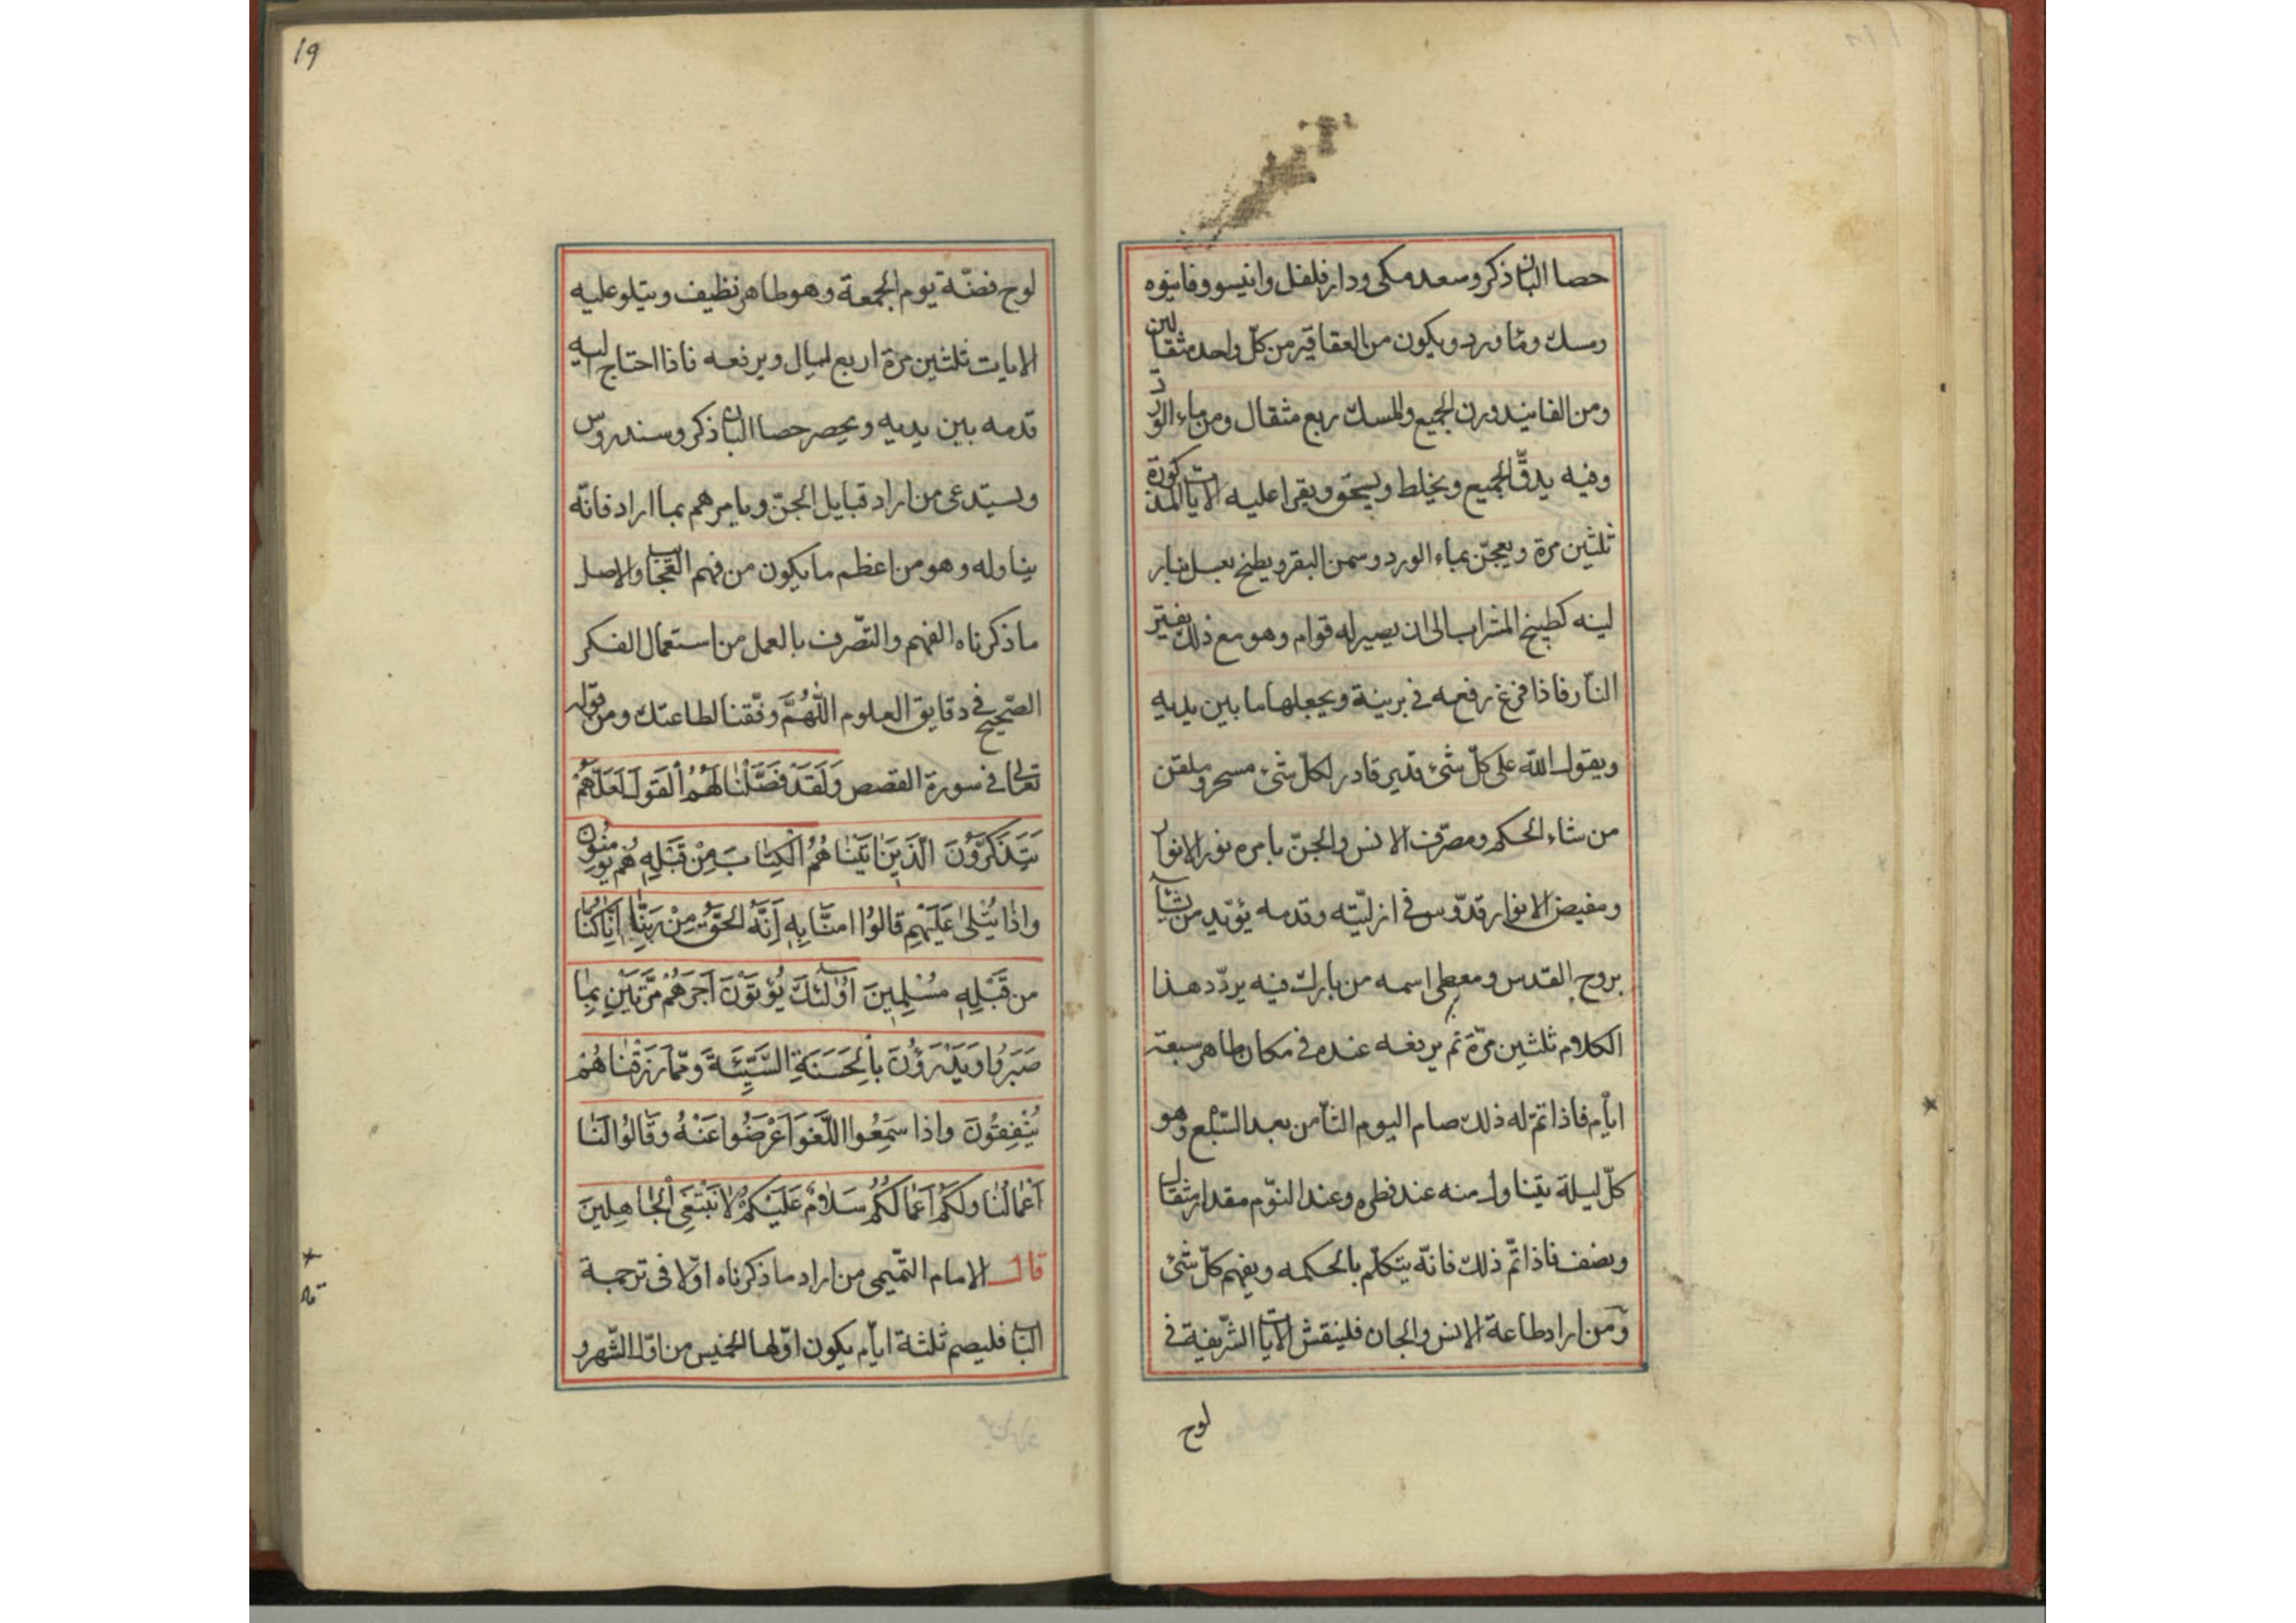 حصا البان ذكر وسعد مكى ودار فلفل وانيسو وفانيوه
ومسك وماورد ويكون من العقاقير من كل واحد مثقالين
ومن الفانيد وزن الجميع والمسك ربع مثقال ومن ماء الورد
وفيه يدقّ الجميع ويخلط ويسحق ويقرا عليه الايات المذكورة
ثلثين مرة ويعجن بماء الورد وسمن البقر ويطبخ بعسل بنار
لينه كطبيخ المشراب الى ان يصير له قوام وهو مع ذلك بفتير
النّار فاذا فرغ رفعه فى برينة ويجعلها ما بين يديه
ويقول الله على كلّ شئ قدير قادر لكلّ شئ مسخر وملقن
من شاء الحكم ومصرّف الانس والجنّ بامره نور الانوار
ومفيض الانوار قدّوس فى ازليّته وقدمه يؤيّد من يشآء
بروح القدس ومعطى اسمه من بارك فيه يردّد هذا
الكلام ثلثين مرّة ثم يرفعه عنده فى مكان طاهر سبعة
ايّام فاذا تمّ له ذلك صام اليوم الثّامن بعد السّبع وهو
كلّ ليلة يتناول منه عند فطره وعند النّوم مقدار مثقال
ونصف فاذا تمّ ذلك فانّه يتكلّم بالحكمه ويفهم كلّ شئ
ومن اراد طاعة الانس والجان فلينقش الايات الشّريفة فى
لوح
19
لوح فضّة يوم الجمعة وهو طاهر نظيف ويتلو عليه
الايات ثلثين مرة اربع ليال ويرفعه فاذا احتاج اليه
قدمه بين يديه ويحصر حصا البان ذكر وسندروس
ويستدعى من اراد قبايل الجنّ ويامرهم بما اراد فانّه
يناوله وهو من اعظم ما يكون من فهم العجايب والاصل
ما ذكرناه الفهم والتّصرف بالعمل من استعمال الفكر
الصّحيح فى دقايق العلوم اللّهُمَّ وفّقنا لطاعتك ومن قوله
تعالى فى سورة القصص وَلَقَدْ فَصَّلْنَا لَهُمُ الْقَوْلَ لَعَلَّهُمْ
يَتَذَكَّرُونَ الَّذِينَ اتَيْنَاهُمُ الْكِتَابَ مِنْ قَبْلِهِ هُمْ يُومِنُونَ
وَاِذَا يُتْلٰى عَلَيْهِمْ قَالُوا امَنَّا بِهِ اَنَّهُ الْحَقُّ مِنْ رَبِّنَا اِنَّا كُنَّا
من قَبْلِهِ مُسْلِمِينَ اُولٰئِكَ يُؤْتَوْنَ اَجْرَهُمْ مَرَّتَيْنِ بِمَا
صَبَرُوا وَيَدْرَؤُنَ بِالْحَسَنَةِ السَّيِّئَةَ وَمِمَّا رَزَقْنَاهُمْ
يُنْفِقُونَ وَاِذَا سَمِعُوا اللَّغْوَ اَعْرَضُوا عَنْهُ وَقَالُوا لَنَا
اَعْمَالُنَا وَلَكُمْ اَعْمَالُكُمْ سَلَامٌ عَلَيْكُمْ لَا نَبْتَغِى الْجَاهِلِينَ
قال الامام التّميمى من اراد ما ذكرناه اوّلا فى ترجمة
الباب فليصم ثلثة ايّام يكون اوّلها الخميس من اوّل الشّهر و